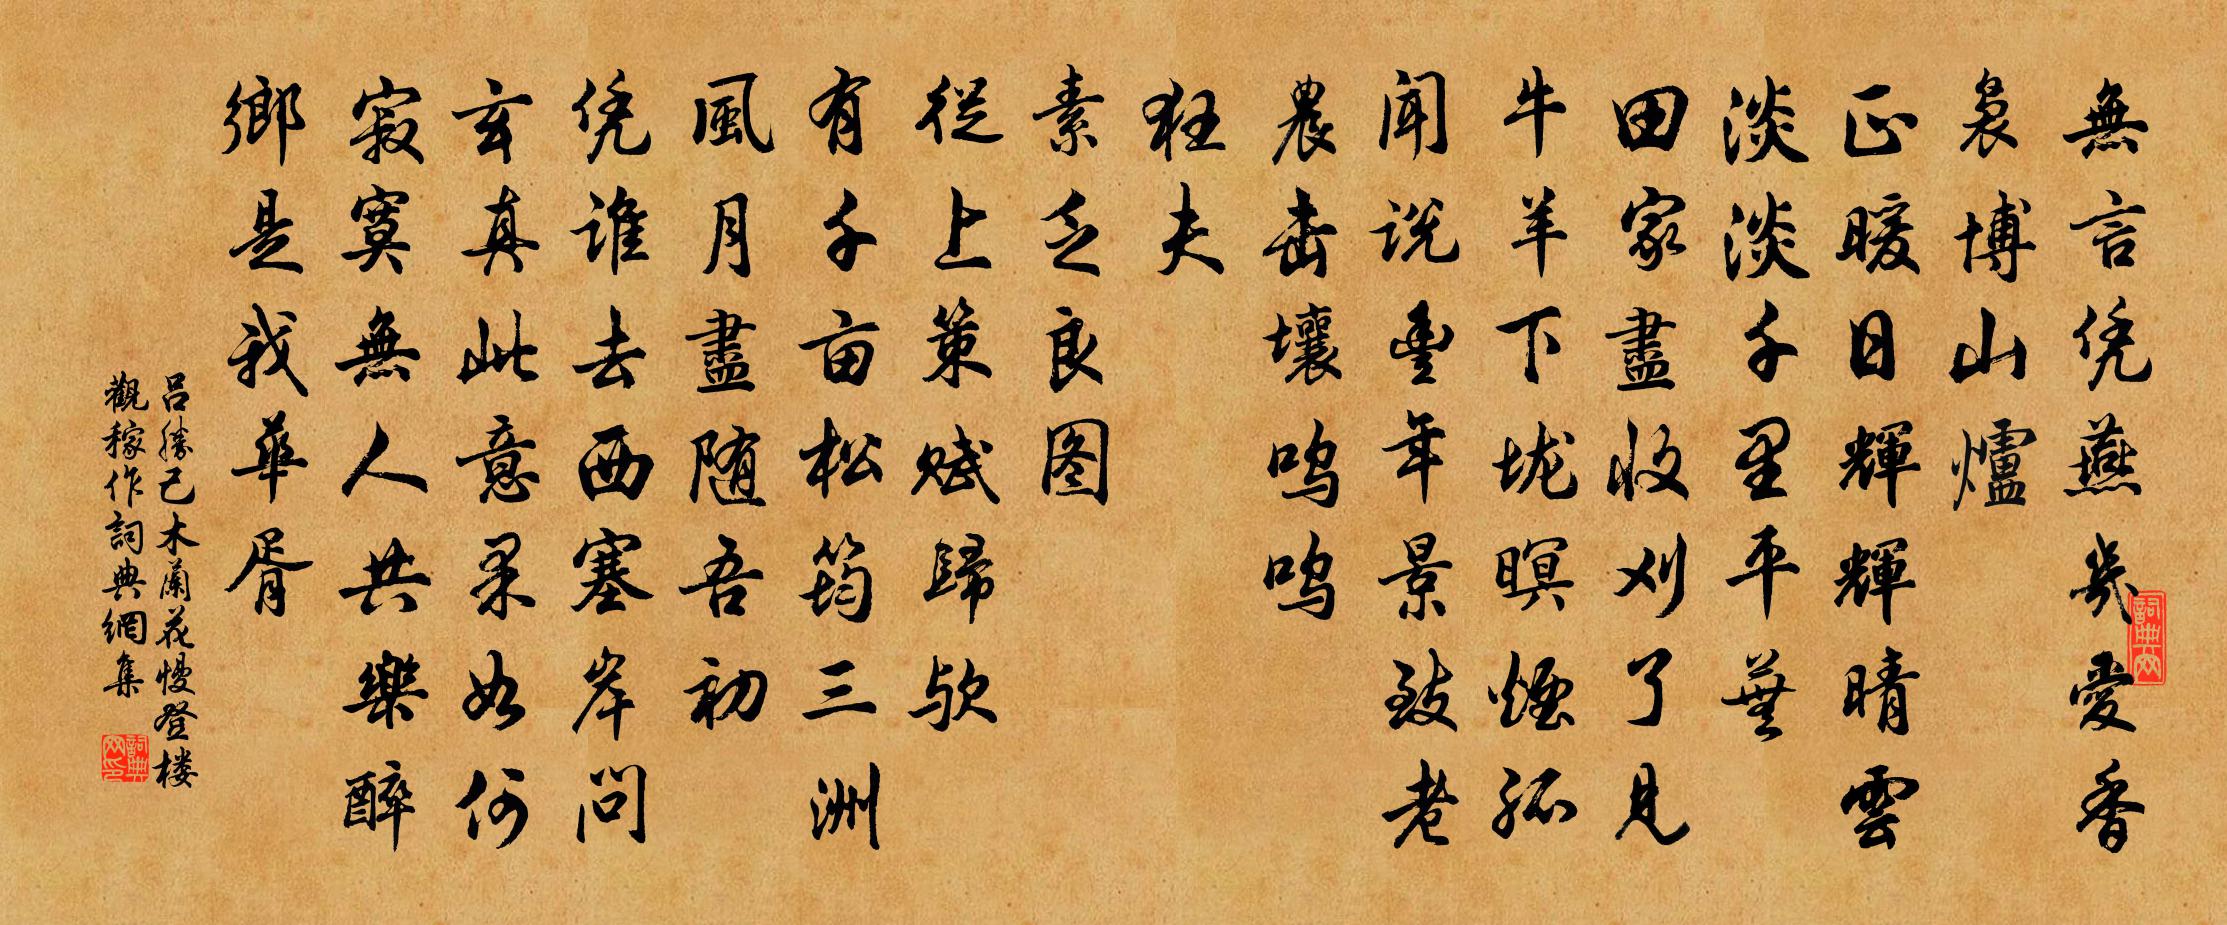 無言凭燕幾愛香
裊博山爐
正暖日輝輝晴雲
淡淡千里平蕪
田家盡收刈了見
牛羊下垅暝煙孤
闻说豐年景致老
農击壤呜呜
狂夫
素乏良图
從上策赋歸欤
有千亩松筠三洲
風月盡随吾初
凭谁去西塞岸问
玄真此意果如何
寂寞無人共樂醉
鄉是我華胥
吕勝己木蘭花慢登楼
觀稼作詞典網集
詞典网
詞典网印